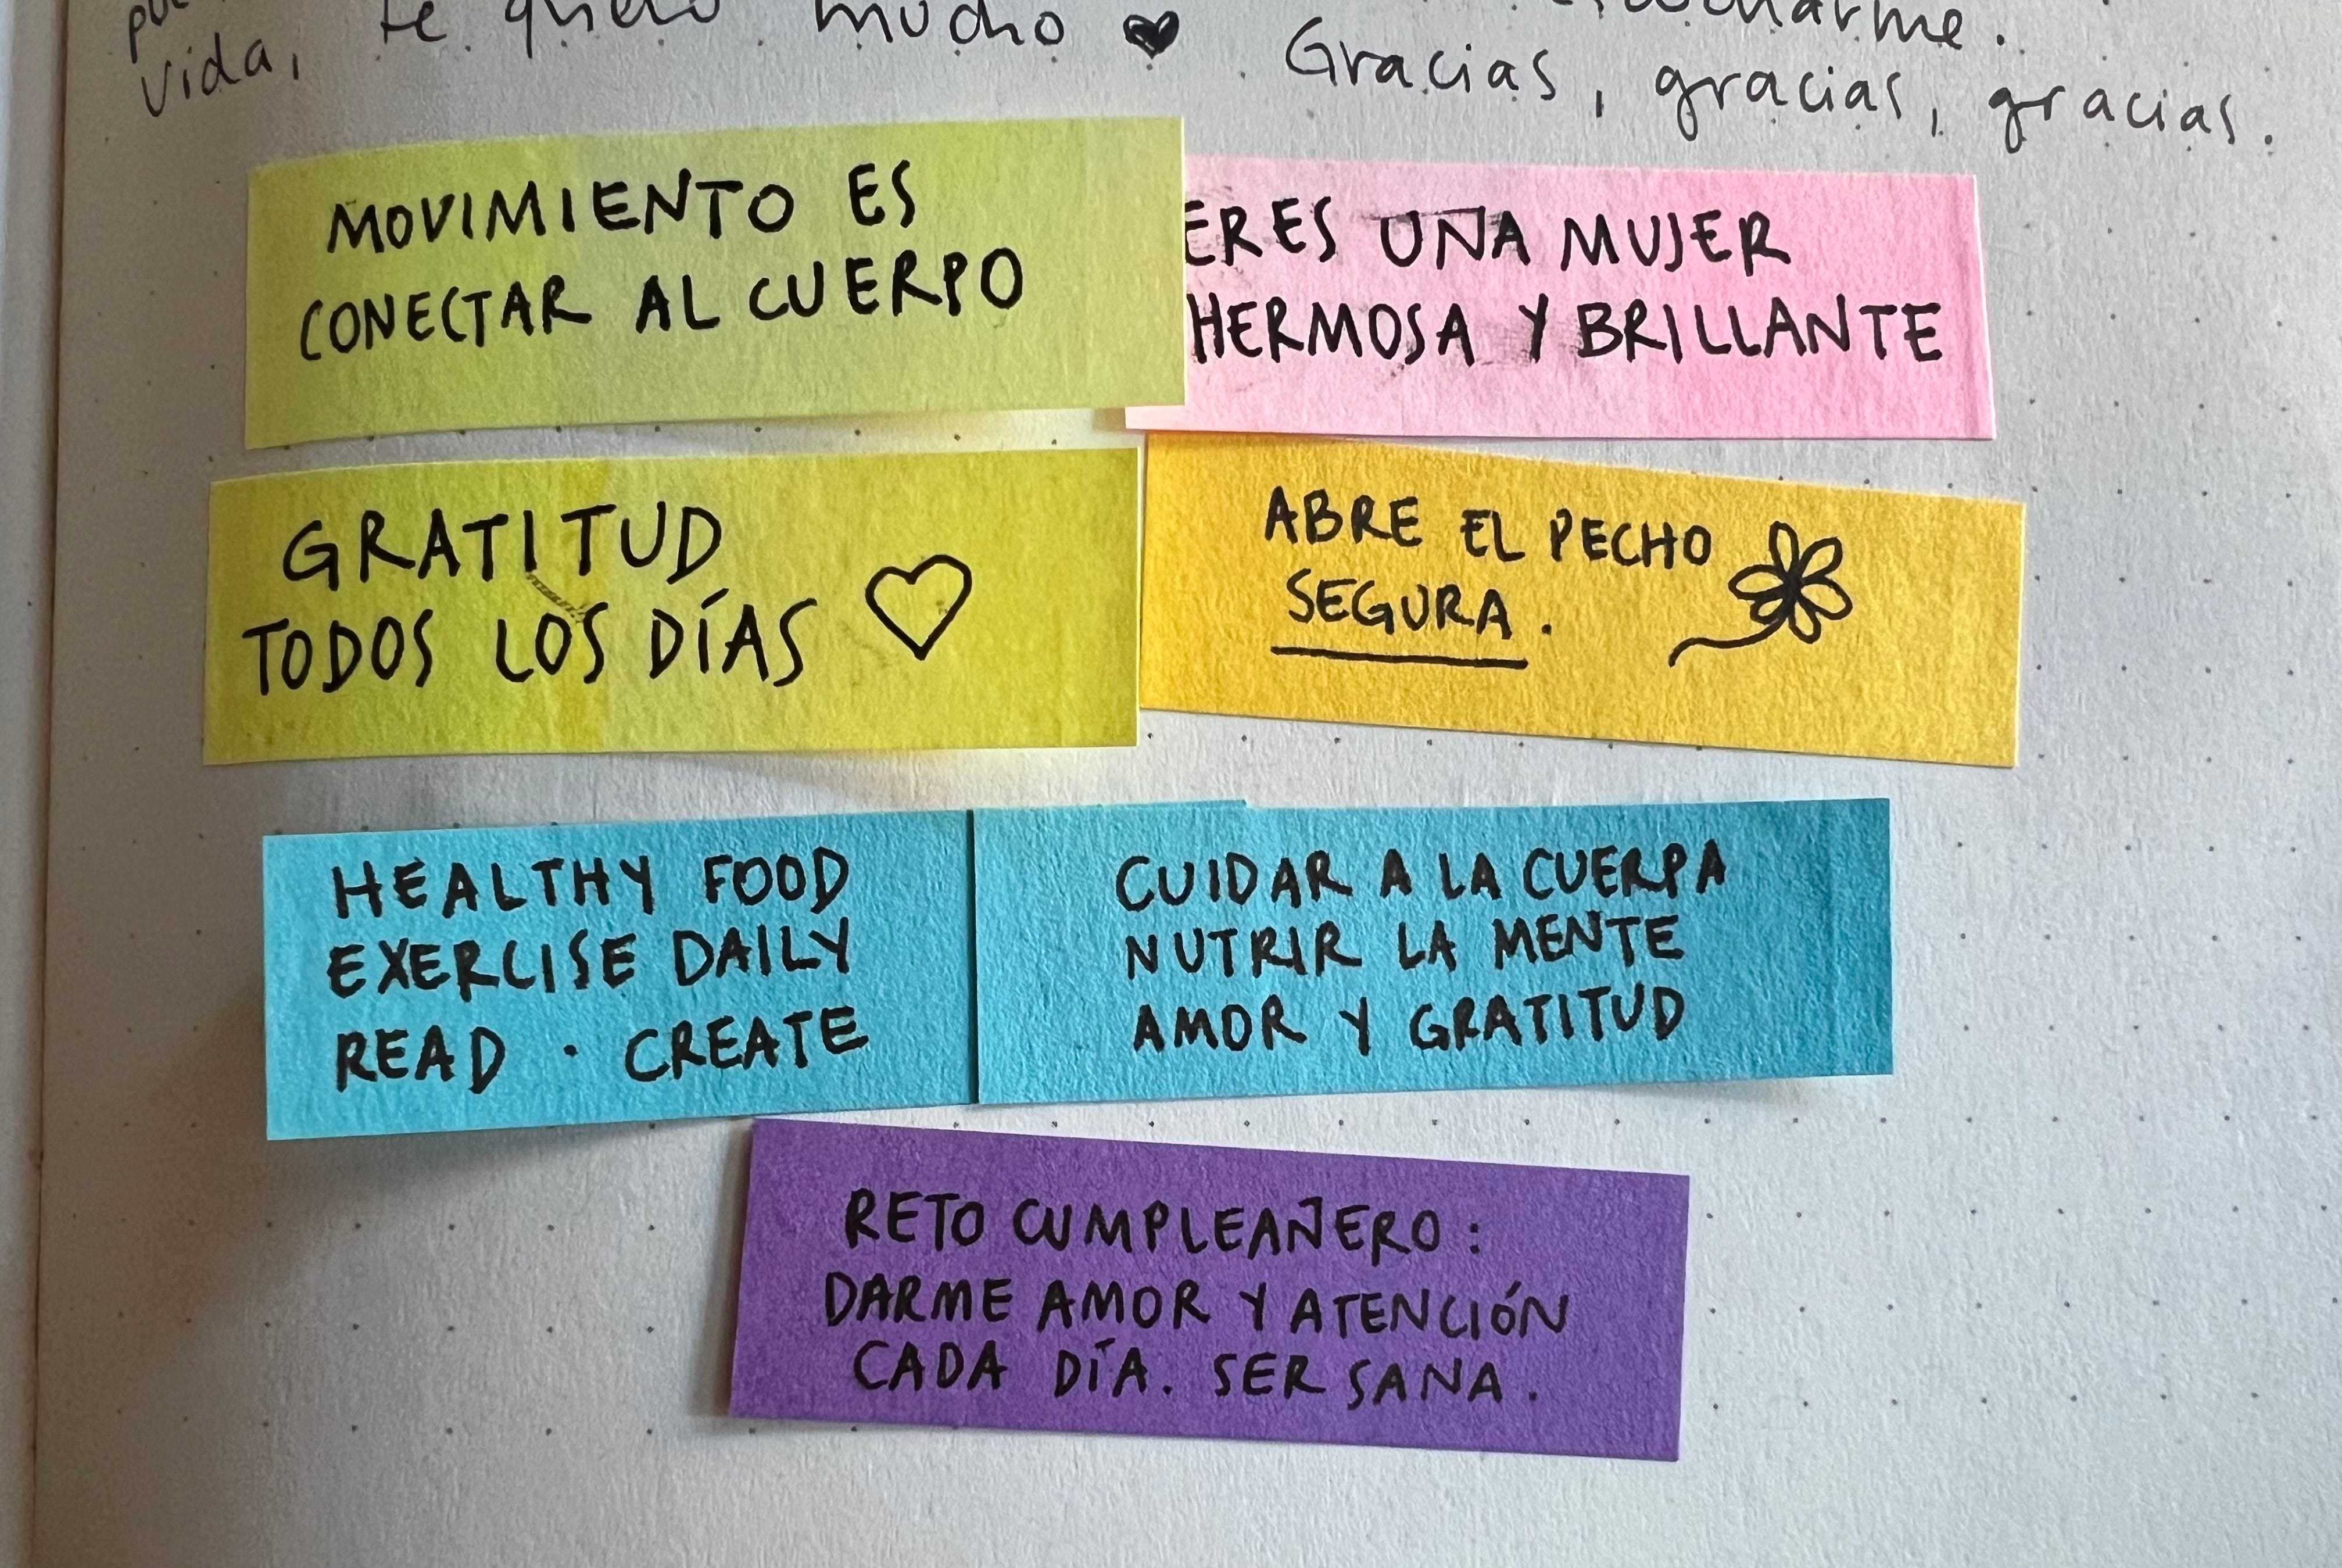 vida, te quiero mucho
Gracias, gracias, gracias.
MOVIMIENTO ES
CONECTAR AL CUERPO
ERES UNA MUJER
HERMOSA Y BRILLANTE
GRATITUD
TODOS LOS DÍAS
ABRE EL PECHO
SEGURA.
HEALTHY FOOD
EXERCISE DAILY
READ · CREATE
CUIDAR A LA CUERPA
NUTRIR LA MENTE
AMOR Y GRATITUD
RETO CUMPLEAÑERO:
DARME AMOR Y ATENCIÓN
CADA DÍA. SER SANA.